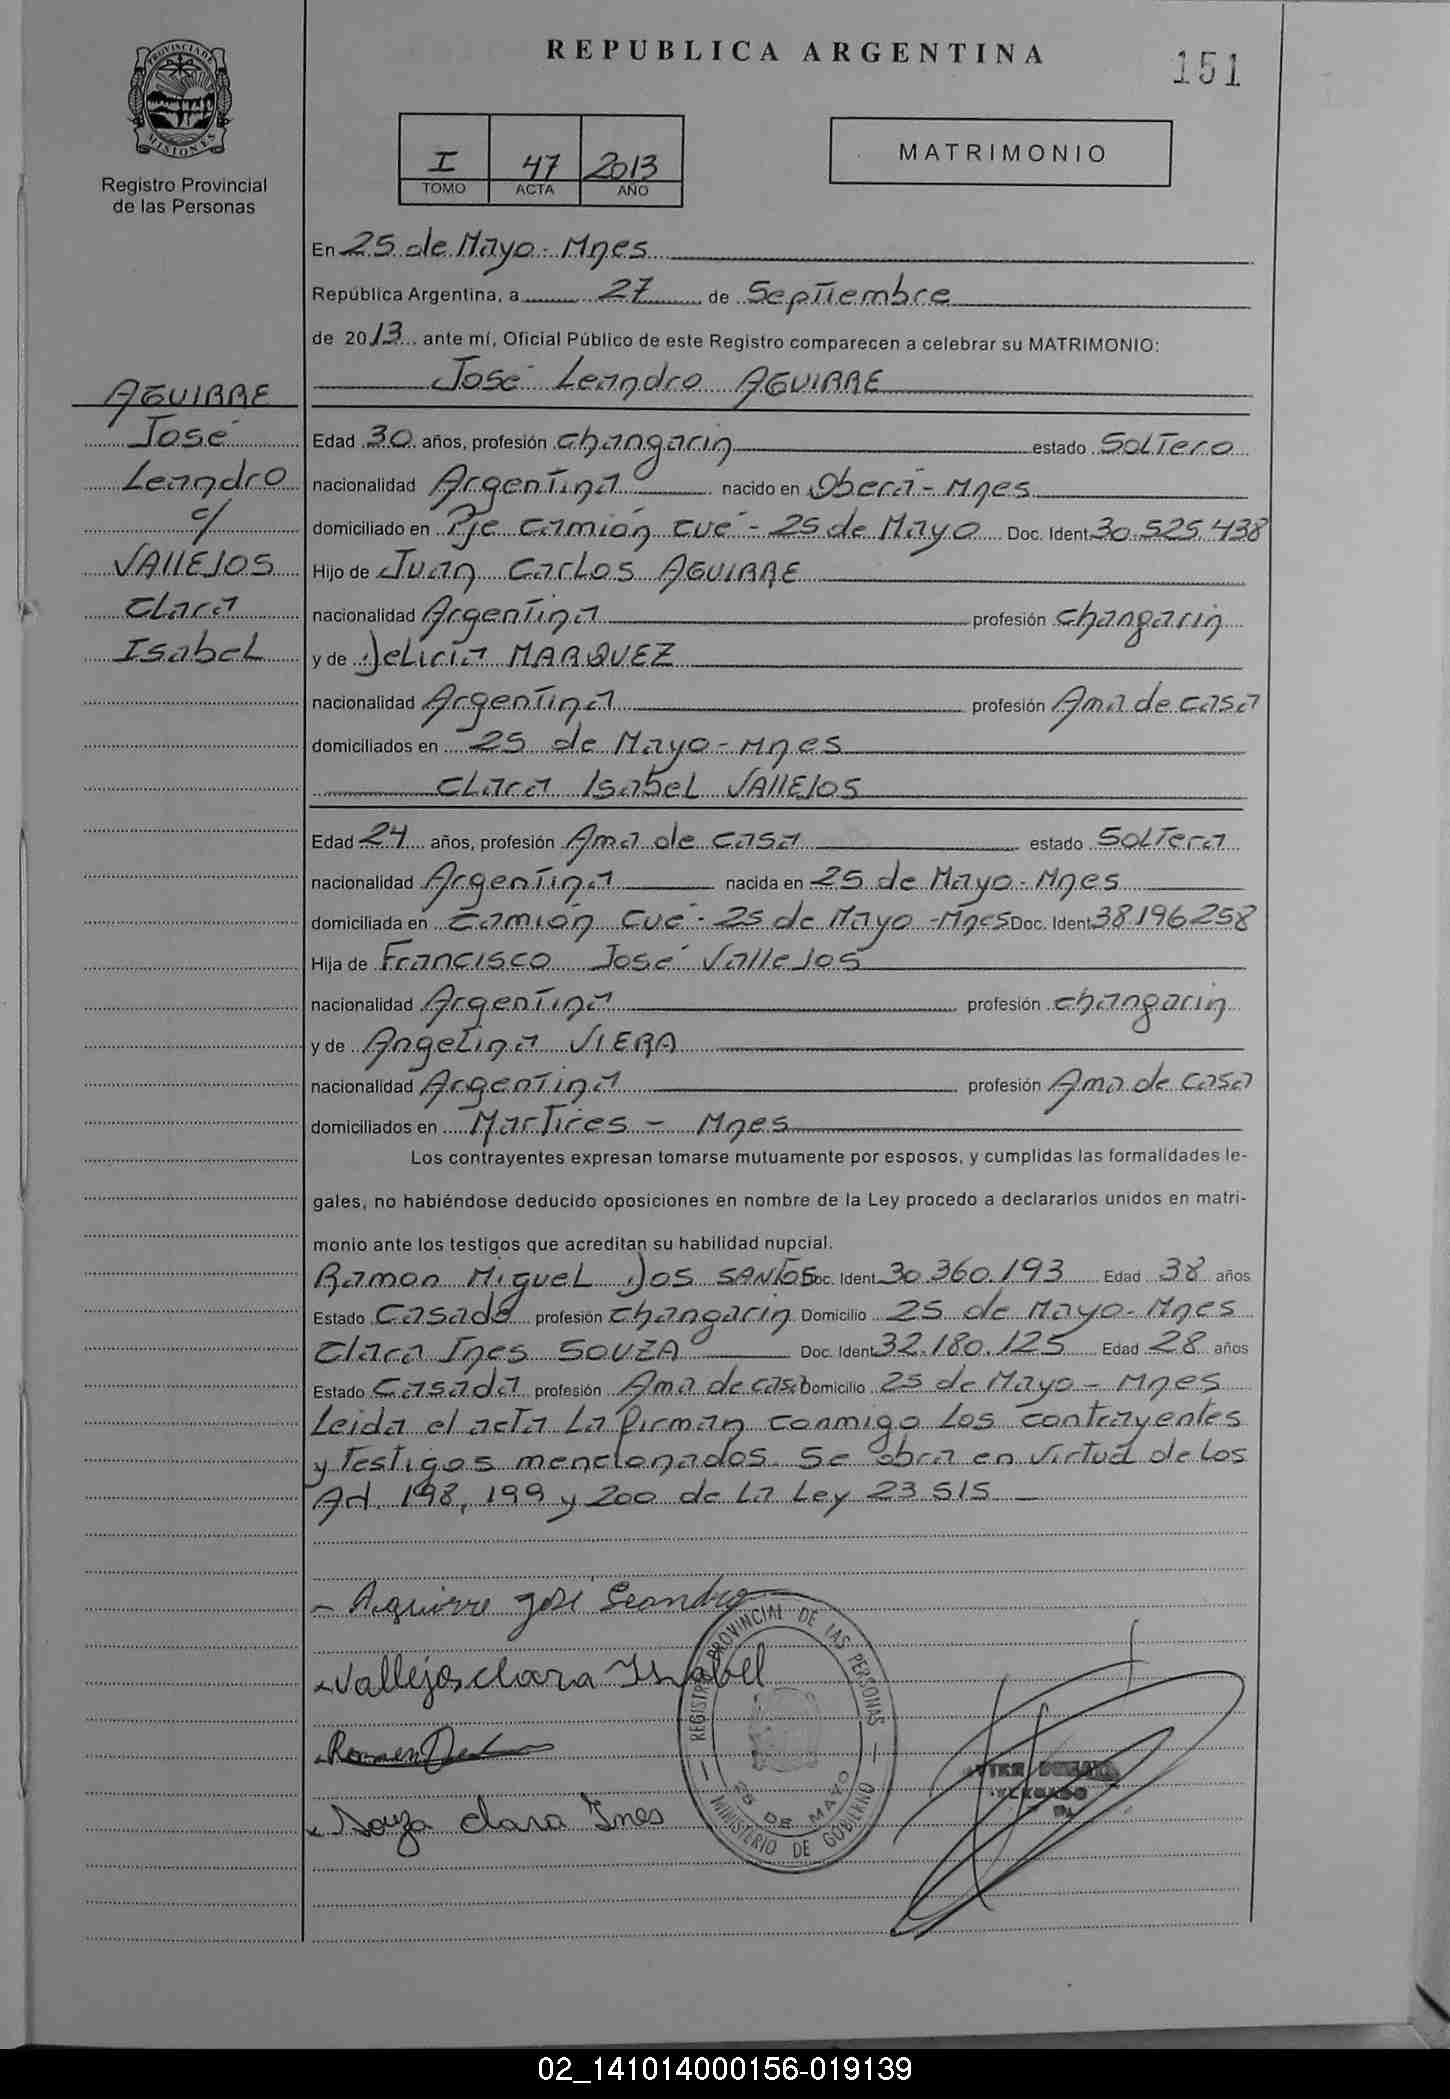 REPUBLICA ARGENTINA
151
PROVINCIA DE
MISIONES
Registro Provincial
de las Personas
I 47 2013
TOMO ACTA AÑO
MATRIMONIO
En 25 de Mayo - Mnes
República Argentina, a 27 de Septiembre
de 2013 ante mí, Oficial Público de este Registro comparecen a celebrar su MATRIMONIO:
José Leandro AGUIRRE
AGUIRRE
José
Leandro
c/
VALLEJOS
Clara
Isabel
Edad 30 años, profesión changarin estado Soltero
nacionalidad Argentina nacido en Oberá - Mnes
domiciliado en Pje Camión Cué - 25 de Mayo Doc. Ident 30.525.438
Hijo de Juan Carlos AGUIRRE
nacionalidad Argentina profesión changarin
y de Delicia MARQUEZ
nacionalidad Argentina profesión Ama de casa
domiciliados en 25 de Mayo - Mnes
Clara Isabel VALLEJOS
Edad 24 años, profesión Ama de casa estado Soltera
nacionalidad Argentina nacida en 25 de Mayo - Mnes
domiciliada en Camión Cué - 25 de Mayo - Mnes Doc. Ident 38.196.258
Hija de Francisco José Vallejos
nacionalidad Argentina profesión changarin
y de Angelina VIERA
nacionalidad Argentina profesión Ama de casa
domiciliados en Martires - Mnes
Los contrayentes expresan tomarse mutuamente por esposos, y cumplidas las formalidades le-
gales, no habiéndose deducido oposiciones en nombre de la Ley procedo a declararlos unidos en matri-
monio ante los testigos que acreditan su habilidad nupcial.
Ramon Miguel Dos SANTOS Doc. Ident 30.360.193 Edad 38 años
Estado Casado profesión changarin Domicilio 25 de Mayo - Mnes
Clara Ines SOUZA Doc. Ident 32.180.125 Edad 28 años
Estado Casada profesión Ama de casa Domicilio 25 de Mayo - Mnes
Leida el acta la firman conmigo los contrayentes
y testigos mencionados. Se obra en virtud de los
Art. 198, 199 y 200 de la Ley 23.515
- Aguirre José Leandro
Vallejos clara Isabel
Souza clara Ines
REGISTRO PROVINCIAL DE LAS PERSONAS
25 DE MAYO
MINISTERIO DE GOBIERNO
02_141014000156-019139